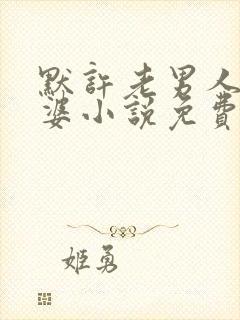 默許老男人
婆小說免費
姬勇